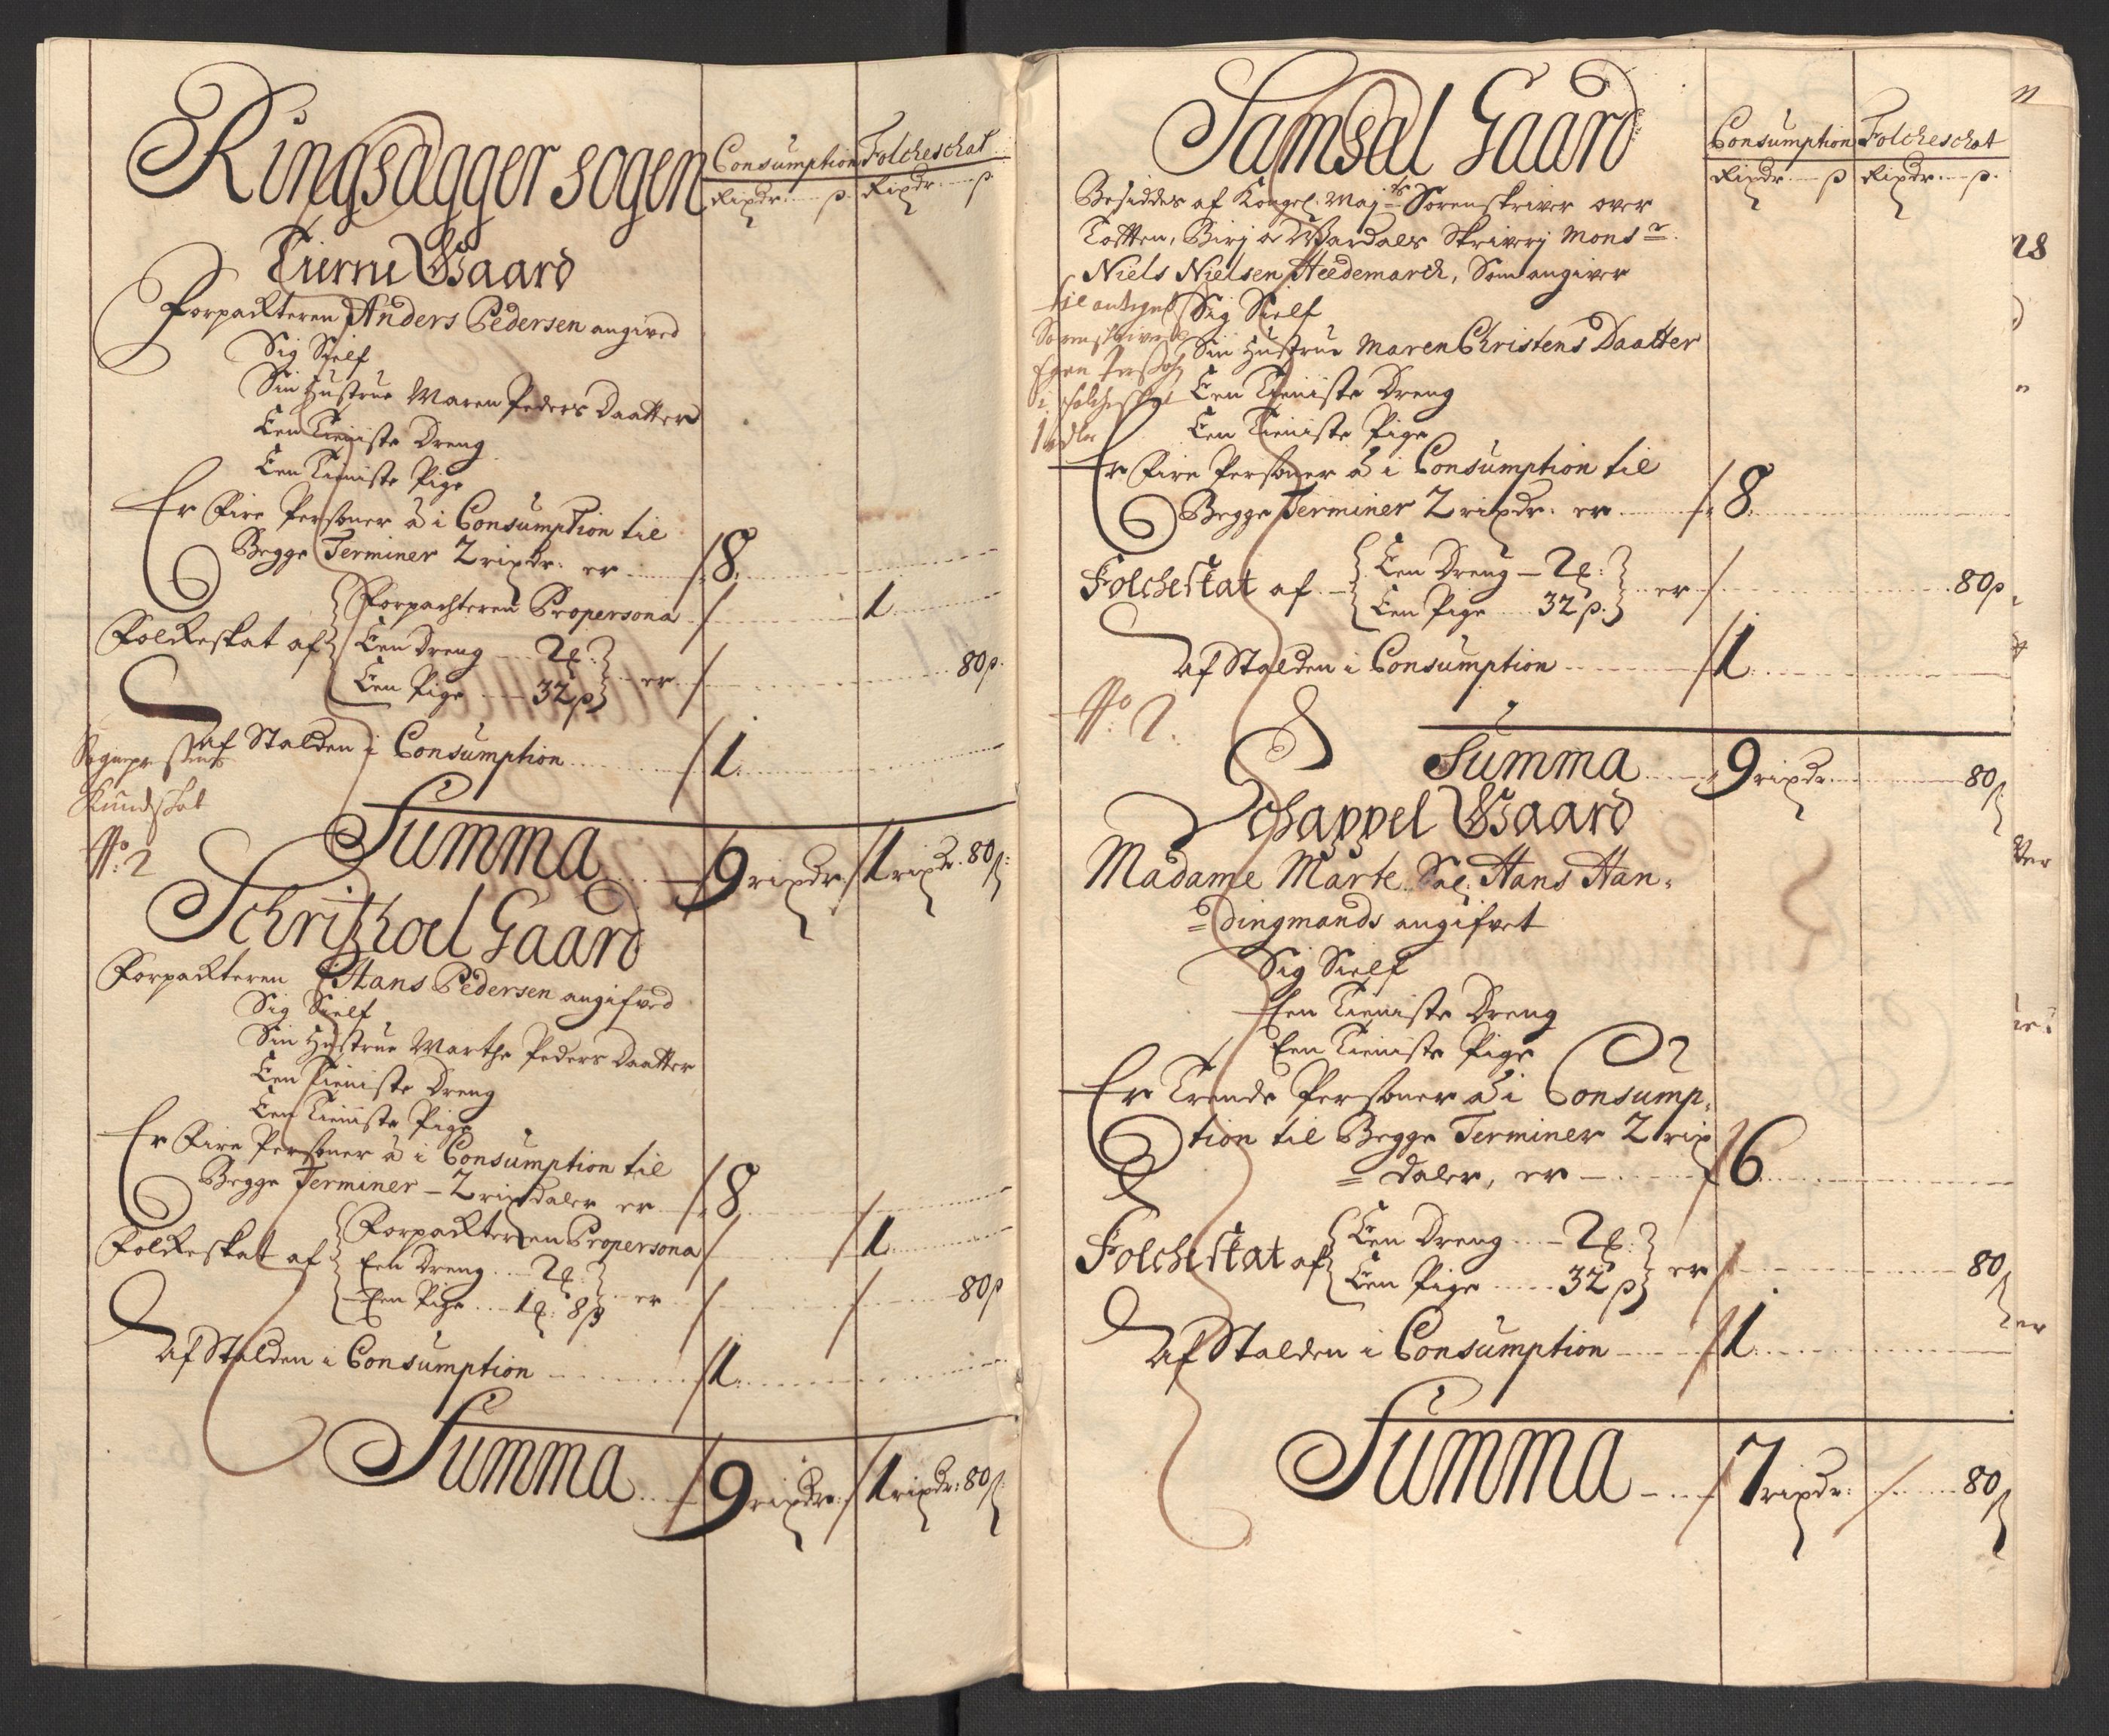 Ringsagger sogen
Consumption Folcheschat
Rixdr. ß. Rixdr. ß
Tierne Gaard
Forpackteren Anders Pedersen angived
Sig Sielf
Sin Hustrue Maren Peders Daatter
Een Tieniste Dreng
Een Tieniste Pige
Er Fire Personer á i Consumption til
Begge Terminer 2 rixdr. er 8
Forpachteren Propersona 1
Folckeskat af Een Dreng 2 ℔. er 80 ß.
Een Pige 32 ß
Af Stalden i Consumption 1
Kundskab
No. 2
Summa 9 rixdr. 1 rixdr. 80 ß.
Schritzhoel Gaard
Forpackteren Hans Pedersen angifved
Sig Sielf
Sin Hustrue Marthe Peders Daatter
Een Tieniste Dreng
Een Tieniste Pige
Er Fire Personer á i Consumption til
Begge Terminer 2 rixdaler er 8
Forpackteren Propersona 1
Folckeskatt af Een Dreng 2 ℔. er 80 ß
Een Pige 1 ℔. 8 ß
Af Stalden i Consumption 1
Summa 9 rixdr. 1 rixdr. 80 ß.
Samsal Gaard
Consumption Folcheschat
Rixdr. ß Rixdr. ß.
Besiddes af Kongel. Maj.ts Sorenskriver over
Totten, Birj oc Wardals Skriverj Monsr.
Niels Nielsen Heedemarck, Som angiver
Sig Sielf
Sin Hustrue Maren Christens Daatter
Een Tieniste Dreng
Een Tieniste Pige
Er Fire Personer á i Consumption til
Begge Terminer 2 rixdr. er 8
Folcheskat af Een Dreng 2 ℔. er 80 ß
Een Pige 32 ß.
Af Stalden i Consumption 1
No. 2.
Summa 9 rixdr. 80 ß.
Schappel Gaard
Madame Marte Sal. Hans Han-
=dingmands angifvet
Sig Sielf
Een Tieniste Dreng
Een Tieniste Pige
Er Trende Personer á i Consump-
tion til Begge Terminer 2 rix
= daler, er 6
Folcheskat af Een Dreng 2 ℔. er 80 ß
Een Pige 32 ß
Af Stalden i Consumption 1
Summa 7 rixdr. 80 ß